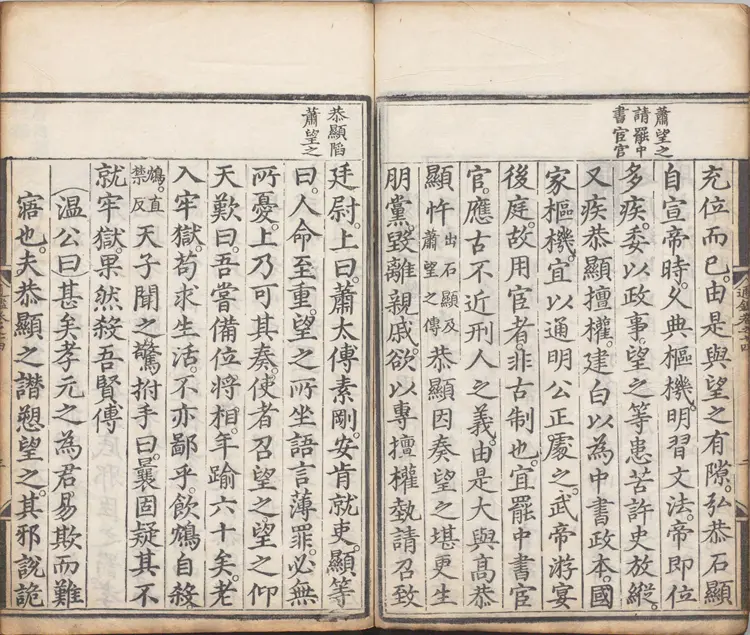 蕭望之
請罷中
書宦官
充位而已。由是與望之有隙。弘恭石顯
自宣帝時。久典樞機。明習文法。帝即位
多疾。委以政事。望之等患苦許史放縱。
又疾恭顯擅權。建白以為中書政本。國
家樞機。宜以通明公正處之。武帝游宴
後庭。故用宦者。非古制也。宜罷中書宦
官。應古不近刑人之義。由是大與高恭
顯忤出石顯及蕭望之傳恭顯因奏望之堪更生
朋黨。毀離親戚。欲以專擅權勢。請召致
恭顯陷
蕭望之
廷尉。上曰。蕭太傅素剛。安肯就吏。顯等
曰。人命至重。望之所坐語言薄罪。必無
所憂。上乃可其奏。使者召望之。望之仰
天歎曰。吾嘗備位將相。年踰六十矣。老
入牢獄。苟求生活。不亦鄙乎。飲鴆自殺
鴆。直禁反天子聞之驚拊手曰。曩固疑其不
就牢獄。果然殺吾賢傅
(溫公曰)甚矣孝元之為君。易欺而難
寤也。夫恭顯之譖愬望之。其邪說詭